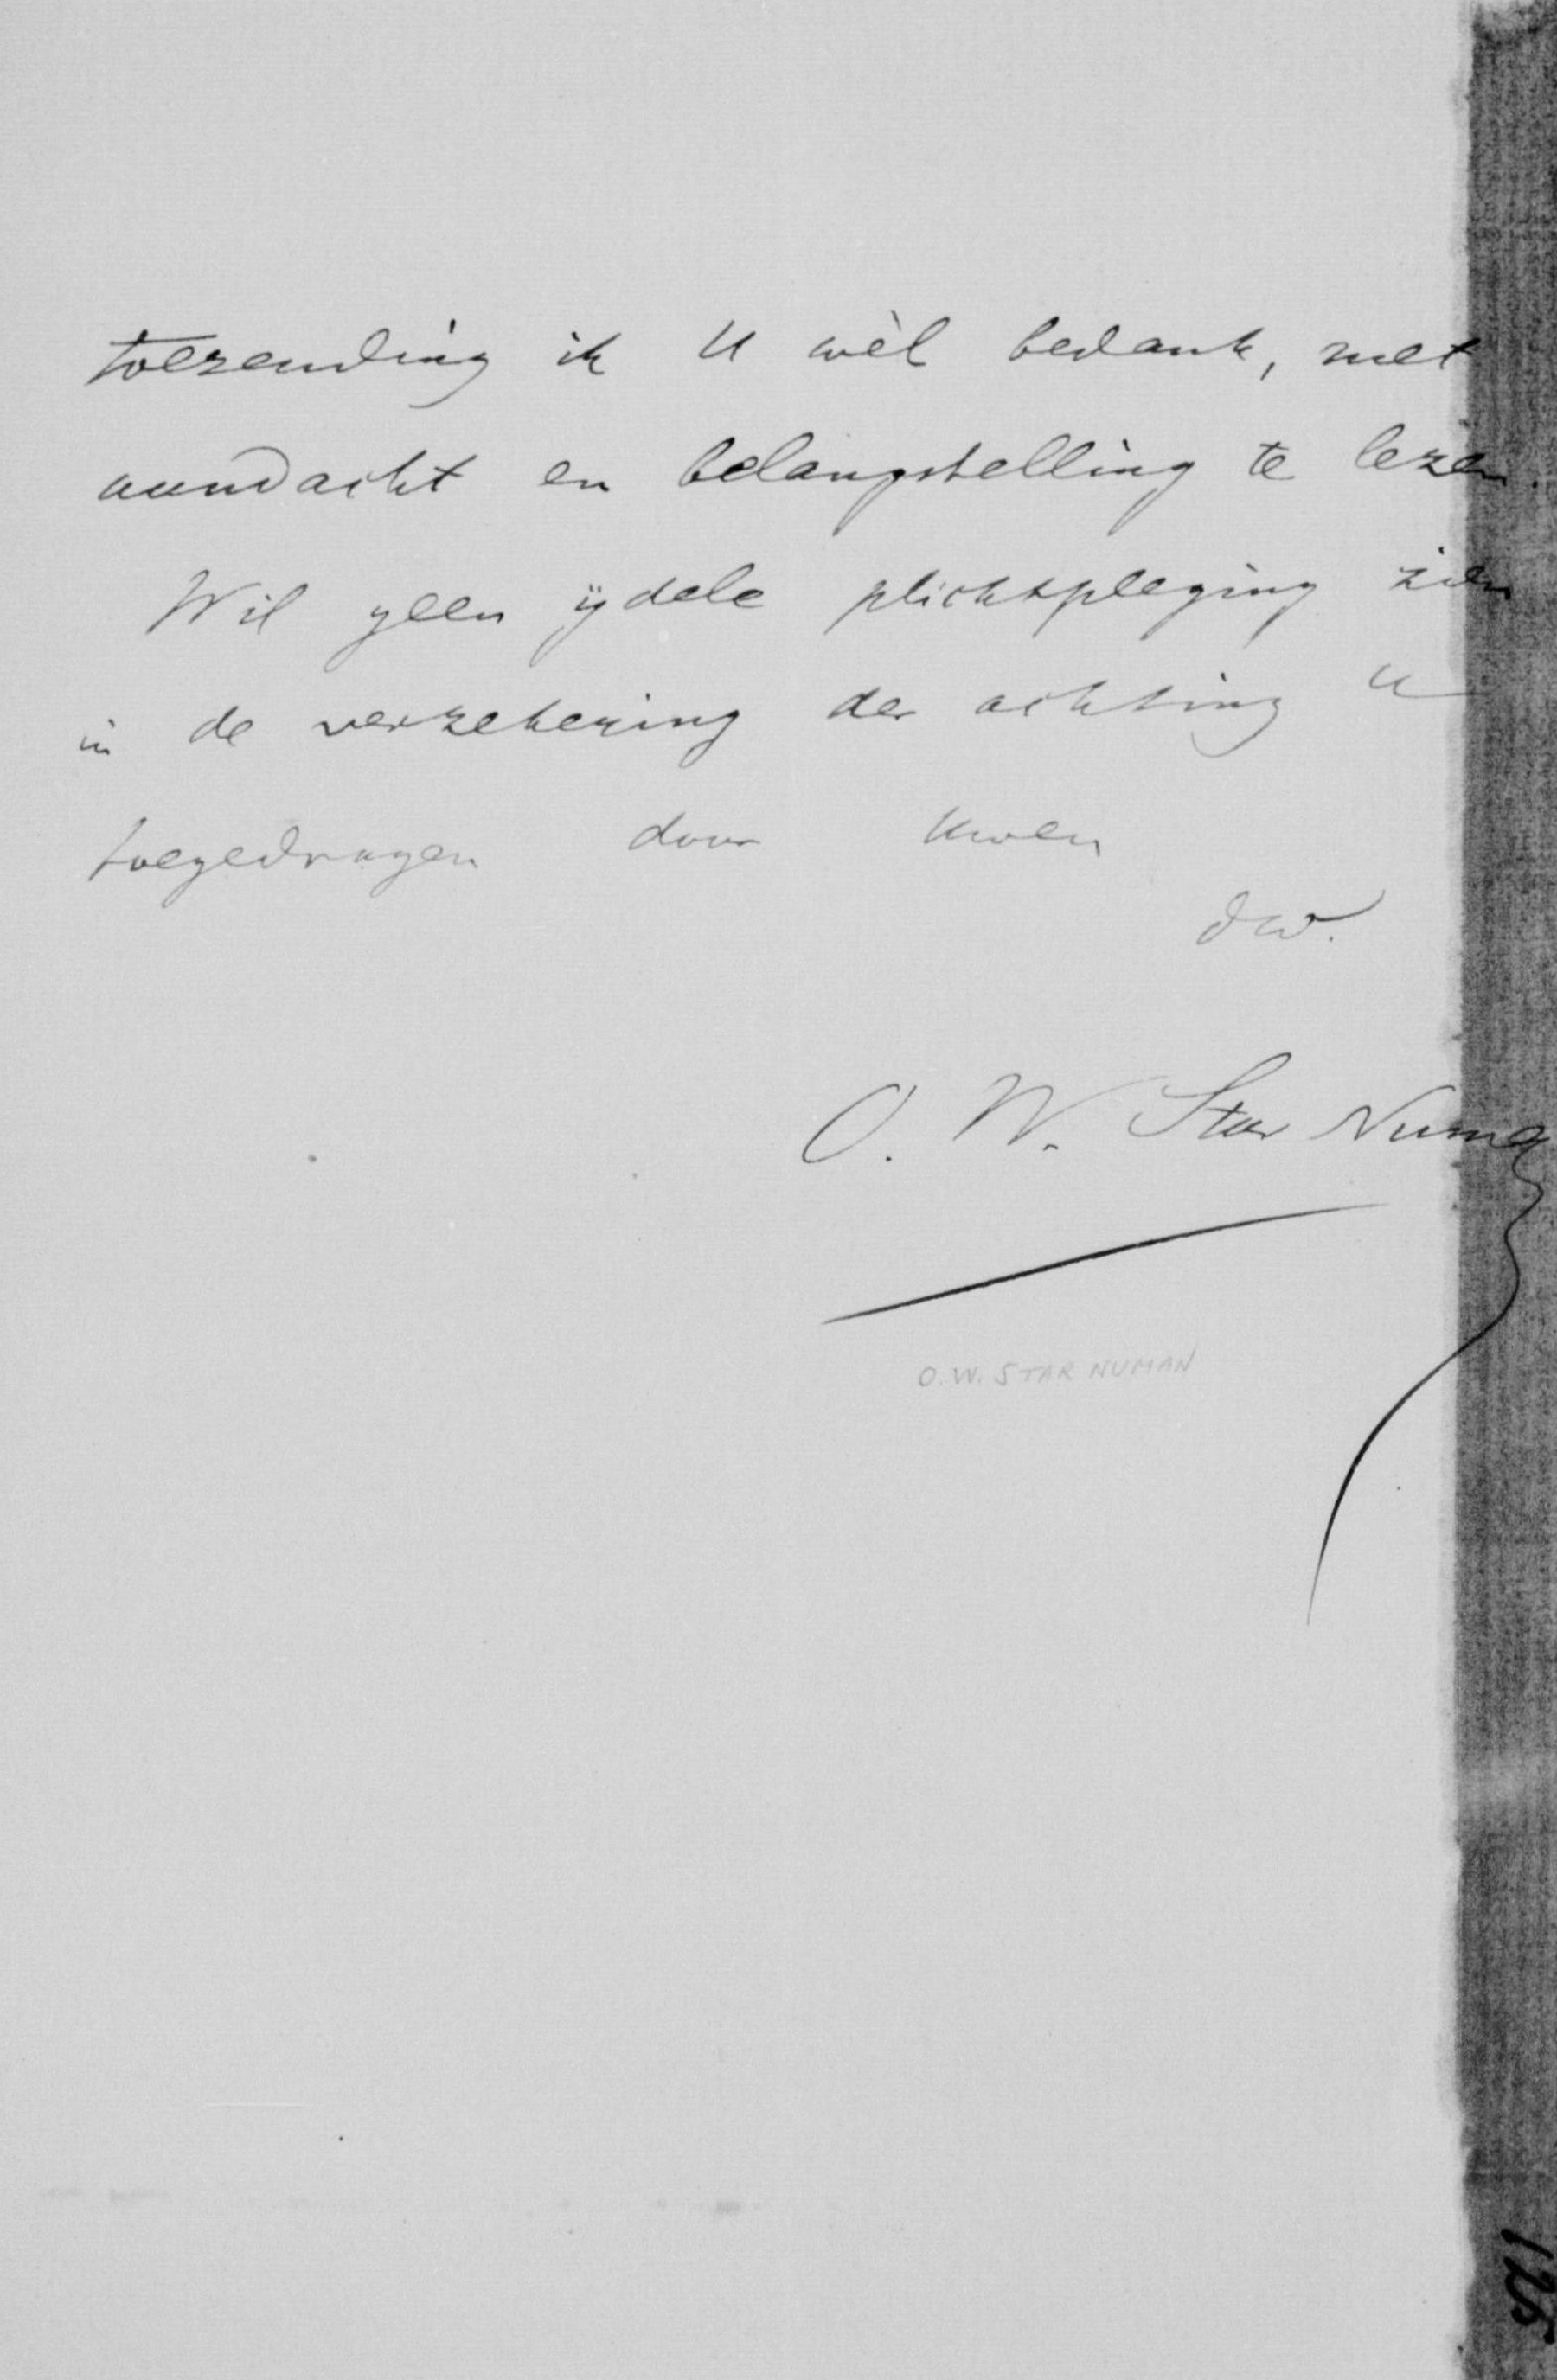 toezending ik U wèl bedank, met
aandacht en belangstelling te lezen.
Wil geen ijdele plichtspleging zien
in de verzekering der achting U
toegedragen door Uwen
dw.
O. W. Star Numan
O. W. STAR NUMAN
125